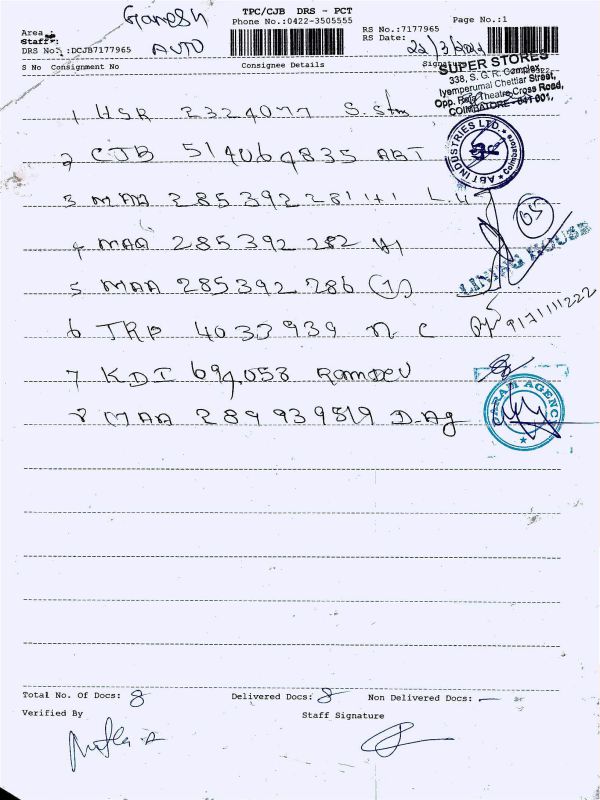 Ganesh
TPC/CJB DRS - PCT
Area
Phone No.:0422-3505555
Page No.:1
Staff:
AUTO
RS No.:7177965
DRS No.:DCJB7177965
RS Date:
S No Consignment No
Consignee Details
Signature
SUPER STORES
338, S. G. R. Complex,
Iyemperumal Chettiar Street,
Opp. Raja Theatre Cross Road,
COIMBATORE - 641 001.
1 HSR 2324077 S. Stm
2 CJB 514064835 ABT
ABT INDUSTRIES LTD. Coimbatore
3 MAA 285392281
05
4 MAA 285392282
LINING HOUSE
5 MAA 285392286
6 TRP 4033939 N C
9171111222
7 KDI 694058 Ramdev
8 MAA 289939819 D. Ag
Total No. Of Docs: 8
Delivered Docs: 8
Non Delivered Docs: —
Verified By
Staff Signature